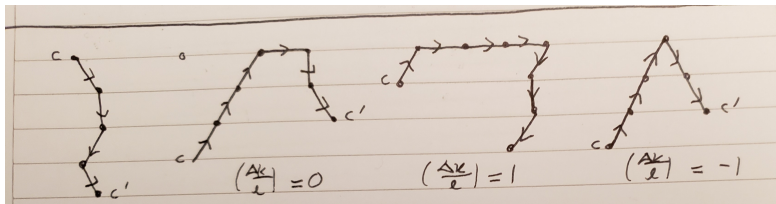 C
C'
C
C'
(Δk/l) = 0
C
(Δk/l) = 1
C
C'
(Δk/l) = -1